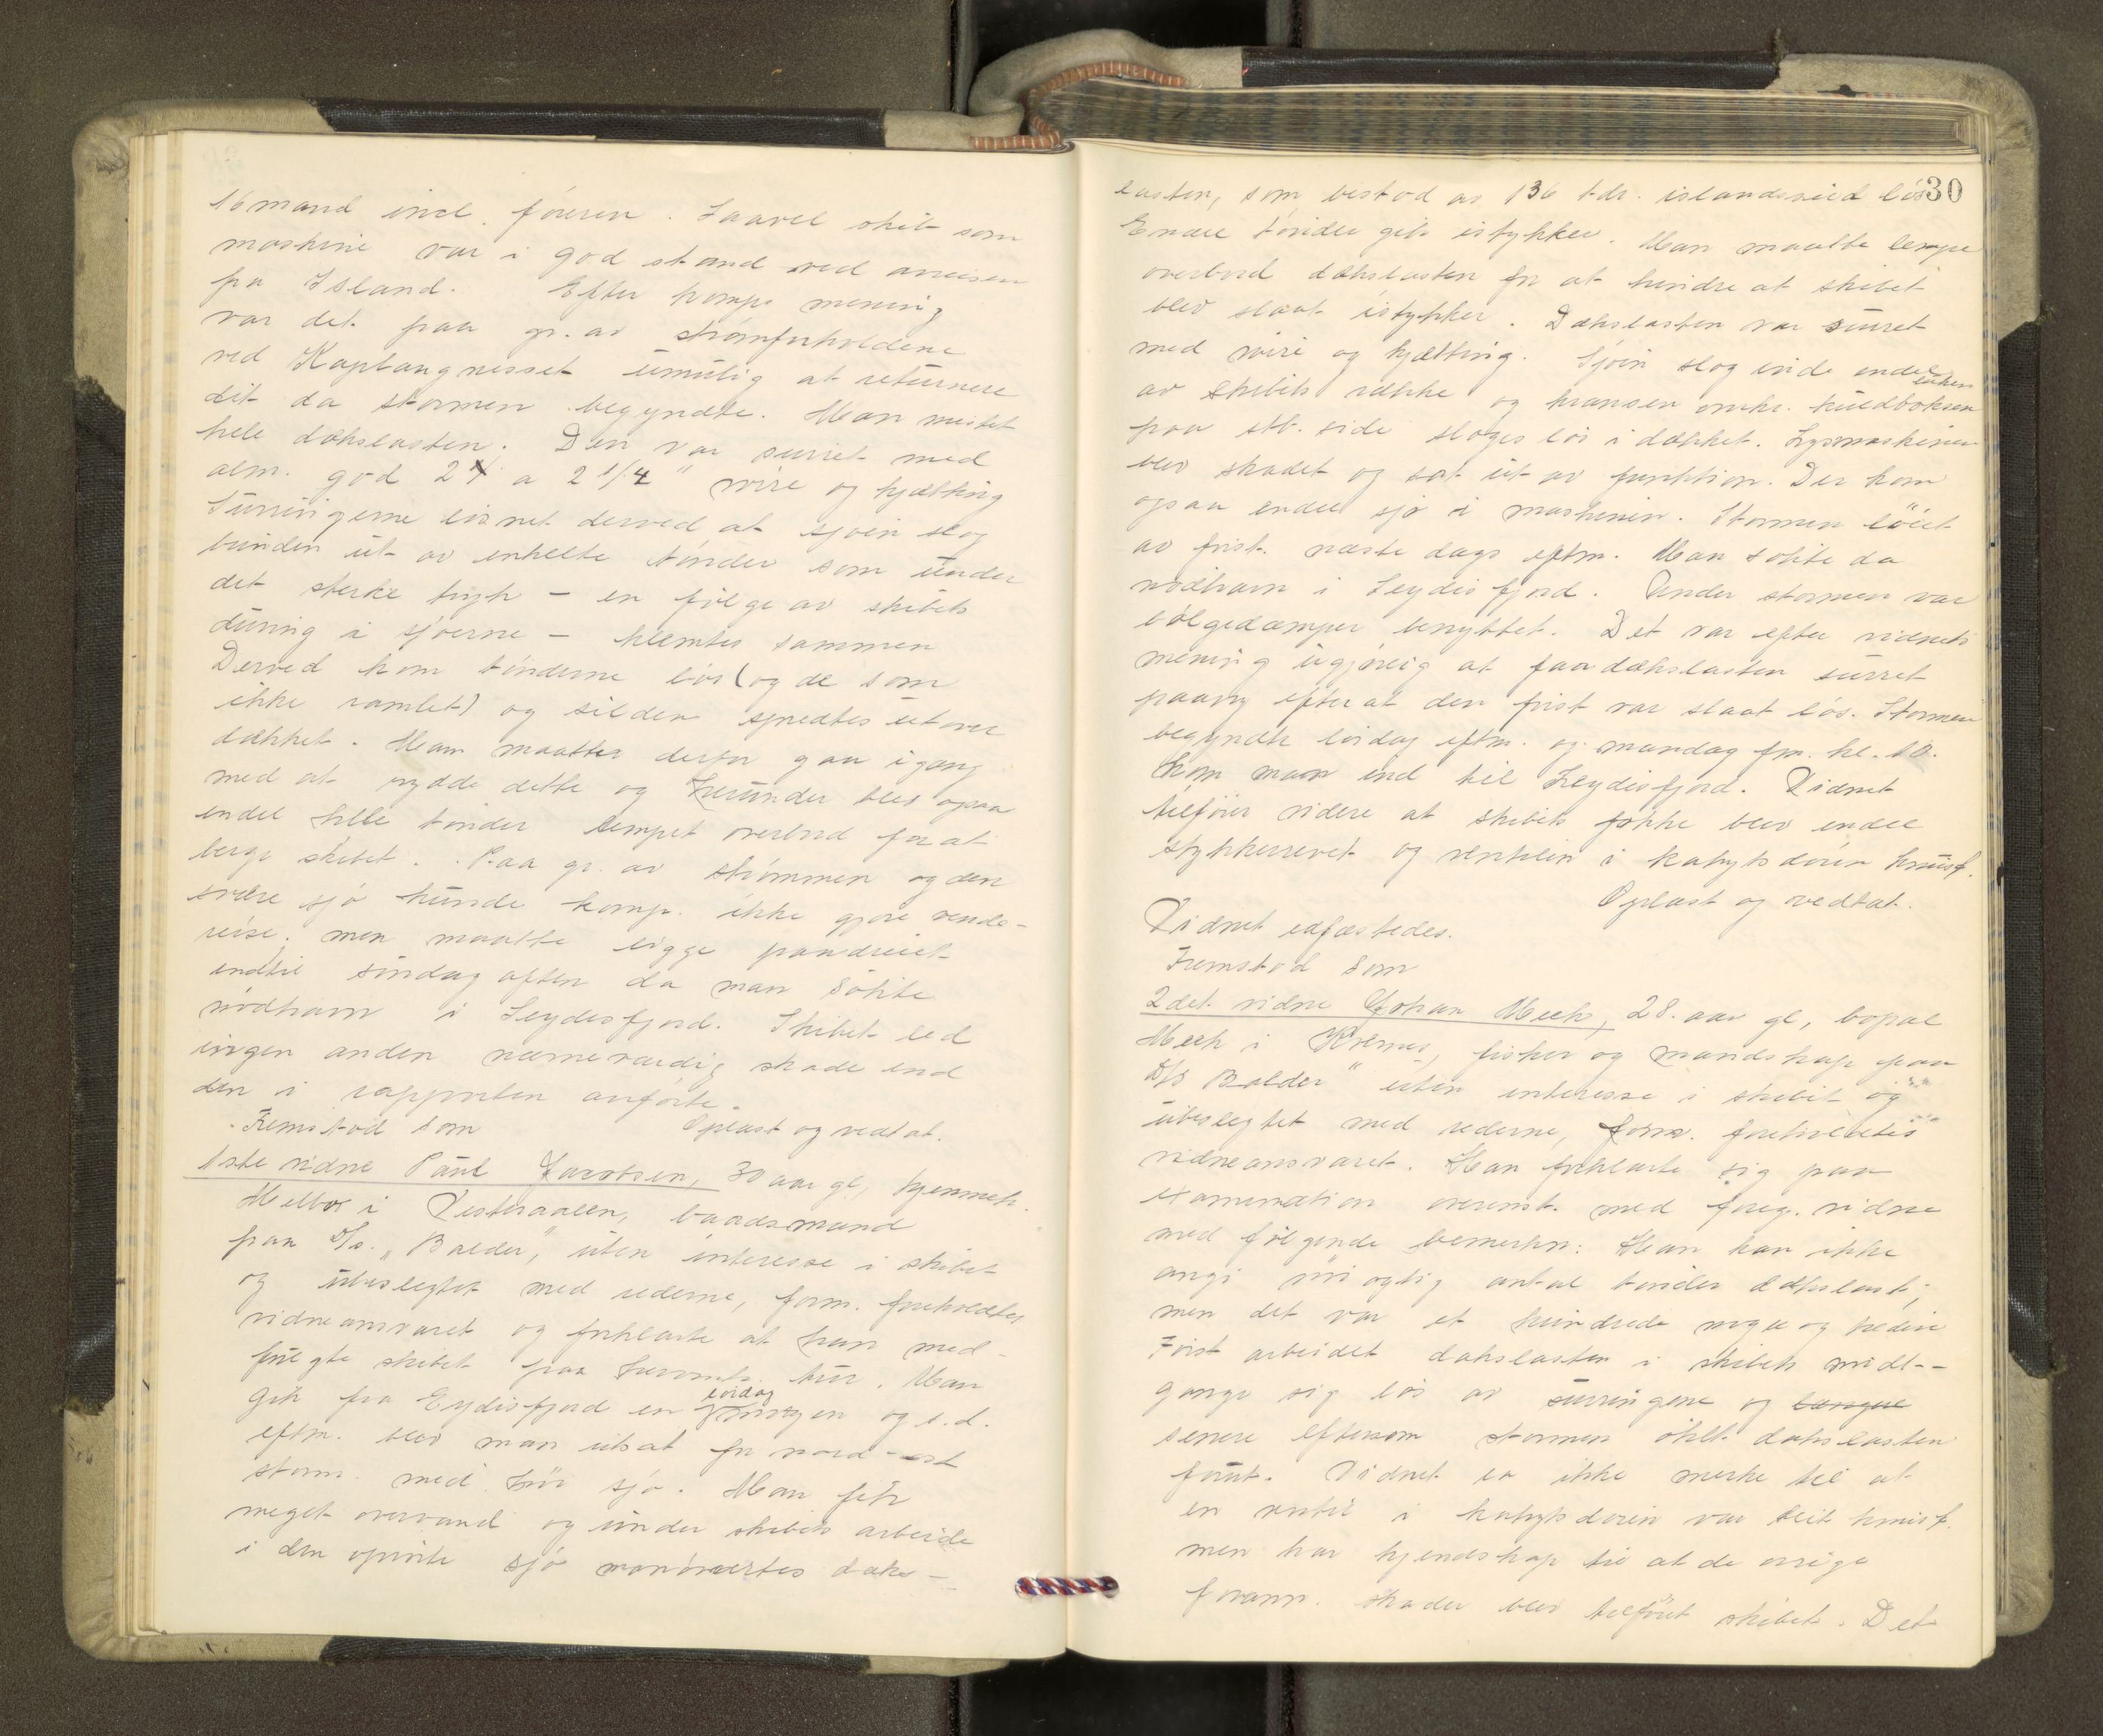 16 mand incl. föreren. Saavel skib som
maskine var i god stand ved avreisen
fra Island. Efter komps mening
var det paa gr. av strömforholdene
ved Kaplangnesset umulig at returnere
dit da stormen begyndte. Man mistet
hele dækslasten. Den var surret med
alm. god 2 a 2 1/4" wire og kjætting
Surringerne lösnet derved at sjöen slog
bunden ut av enkelte tönder som under
det sterke tryk – en fölge av skibets
duving i sjöerne – klemtes sammen
Derved kom tönderne lös (og de som
ikke ramlet) og silden spredtes utover
dækket. Man maatte derfor gaa igang
med at rydde dette og herunder blev ogsaa
endel hele tönder lempet overbord for at
berge skibet. Paa gr. av strömmen og den
svære sjö kunde komp. ikke gjöre vende-
reise, men maatte ligge paadreiet
indtil söndag aften da man sökte
nödhavn i Seydisfjord. Skibet led
ingen anden nævneværdig skade end
den i rapporten anförte.
Fremstod som Oplæst og vedtat.
1ste vidne Paul Jacobsen, 30 aar gl, hjemmeh.
Melbo i Vesteraalen, baadsmand
paa D/s. "Balder", uten interesse i skibet
og ubeslegtet med rederne, form. foreholdtes
vidneansvaret og forklarte at han med-
fulgte skibet paa heromh. tur. Man
lördag
gik fra Seydisfjord en morgen og s.d.
eftm. blev man utsat for nord-ost
storm med höi sjö. Man fik
meget overvand og under skibets arbeide
i den oprörte sjö manövertes dæks-
30
lasten, som bestod av 136 tdr. islandssild lös
Endel tönder gik istykker. Man maatte lempe
overbord dækslasten for at hindre at skibet
blev slaat istykker. Dækslasten var surret
med wire og kjætting. Sjöen slog inde endel
luken
av skibets række og kransen omkr. kuldboksen
paa stb. side sloges lös i dækket. Lysmaskinen
blev skadet og sat ut av funktion. Der kom
ogsaa endel sjö i maskinen. Stormen löiet
av först næste dags eftm. Man sökte da
nödhavn i Seydisfjord. Under stormen var
bölgedæmper benyttet. Det var efter vidnets
mening ugjörlig at faa dækslasten surret
paany efterat den först var slaat lös. Stormen
begyndte lördag eftm. og mandag fm. kl. 10.
kom man ind til Seydisfjord. Vidnet
tilföier videre at skibets fokke blev endel
stykkerrevet og ventilen i kahytsdören knust.
Oplæst og vedtat.
Vidnet edfæstedes.
Fremstod som
2det vidne Johan Meek, 28. aar gl, bopæl
Meek i , fisker og mandskap paa
D/S Balder" uten interesse i skibet og
ubeslegtet med rederne, form. foreholdtes
vidneansvaret. Han forklarte sig paa
examination overenst. med foreg. vidne
med fölgende bemerkn: Han kan ikke
angi nöiagtig antal tönder dækslast,
men det var et hundrede nogen og tredive
Först arbeidet dækslasten i skibets midt-
gange sig lös av surringene og længre
senere eftersom stormen ökte dækslasten
forut. Vidnet la ikke merke til at
en ventil i kahytsdören var blit knust.
men har kjendskap til at de övrige
forann. skader blev tilföiet skibet. Det